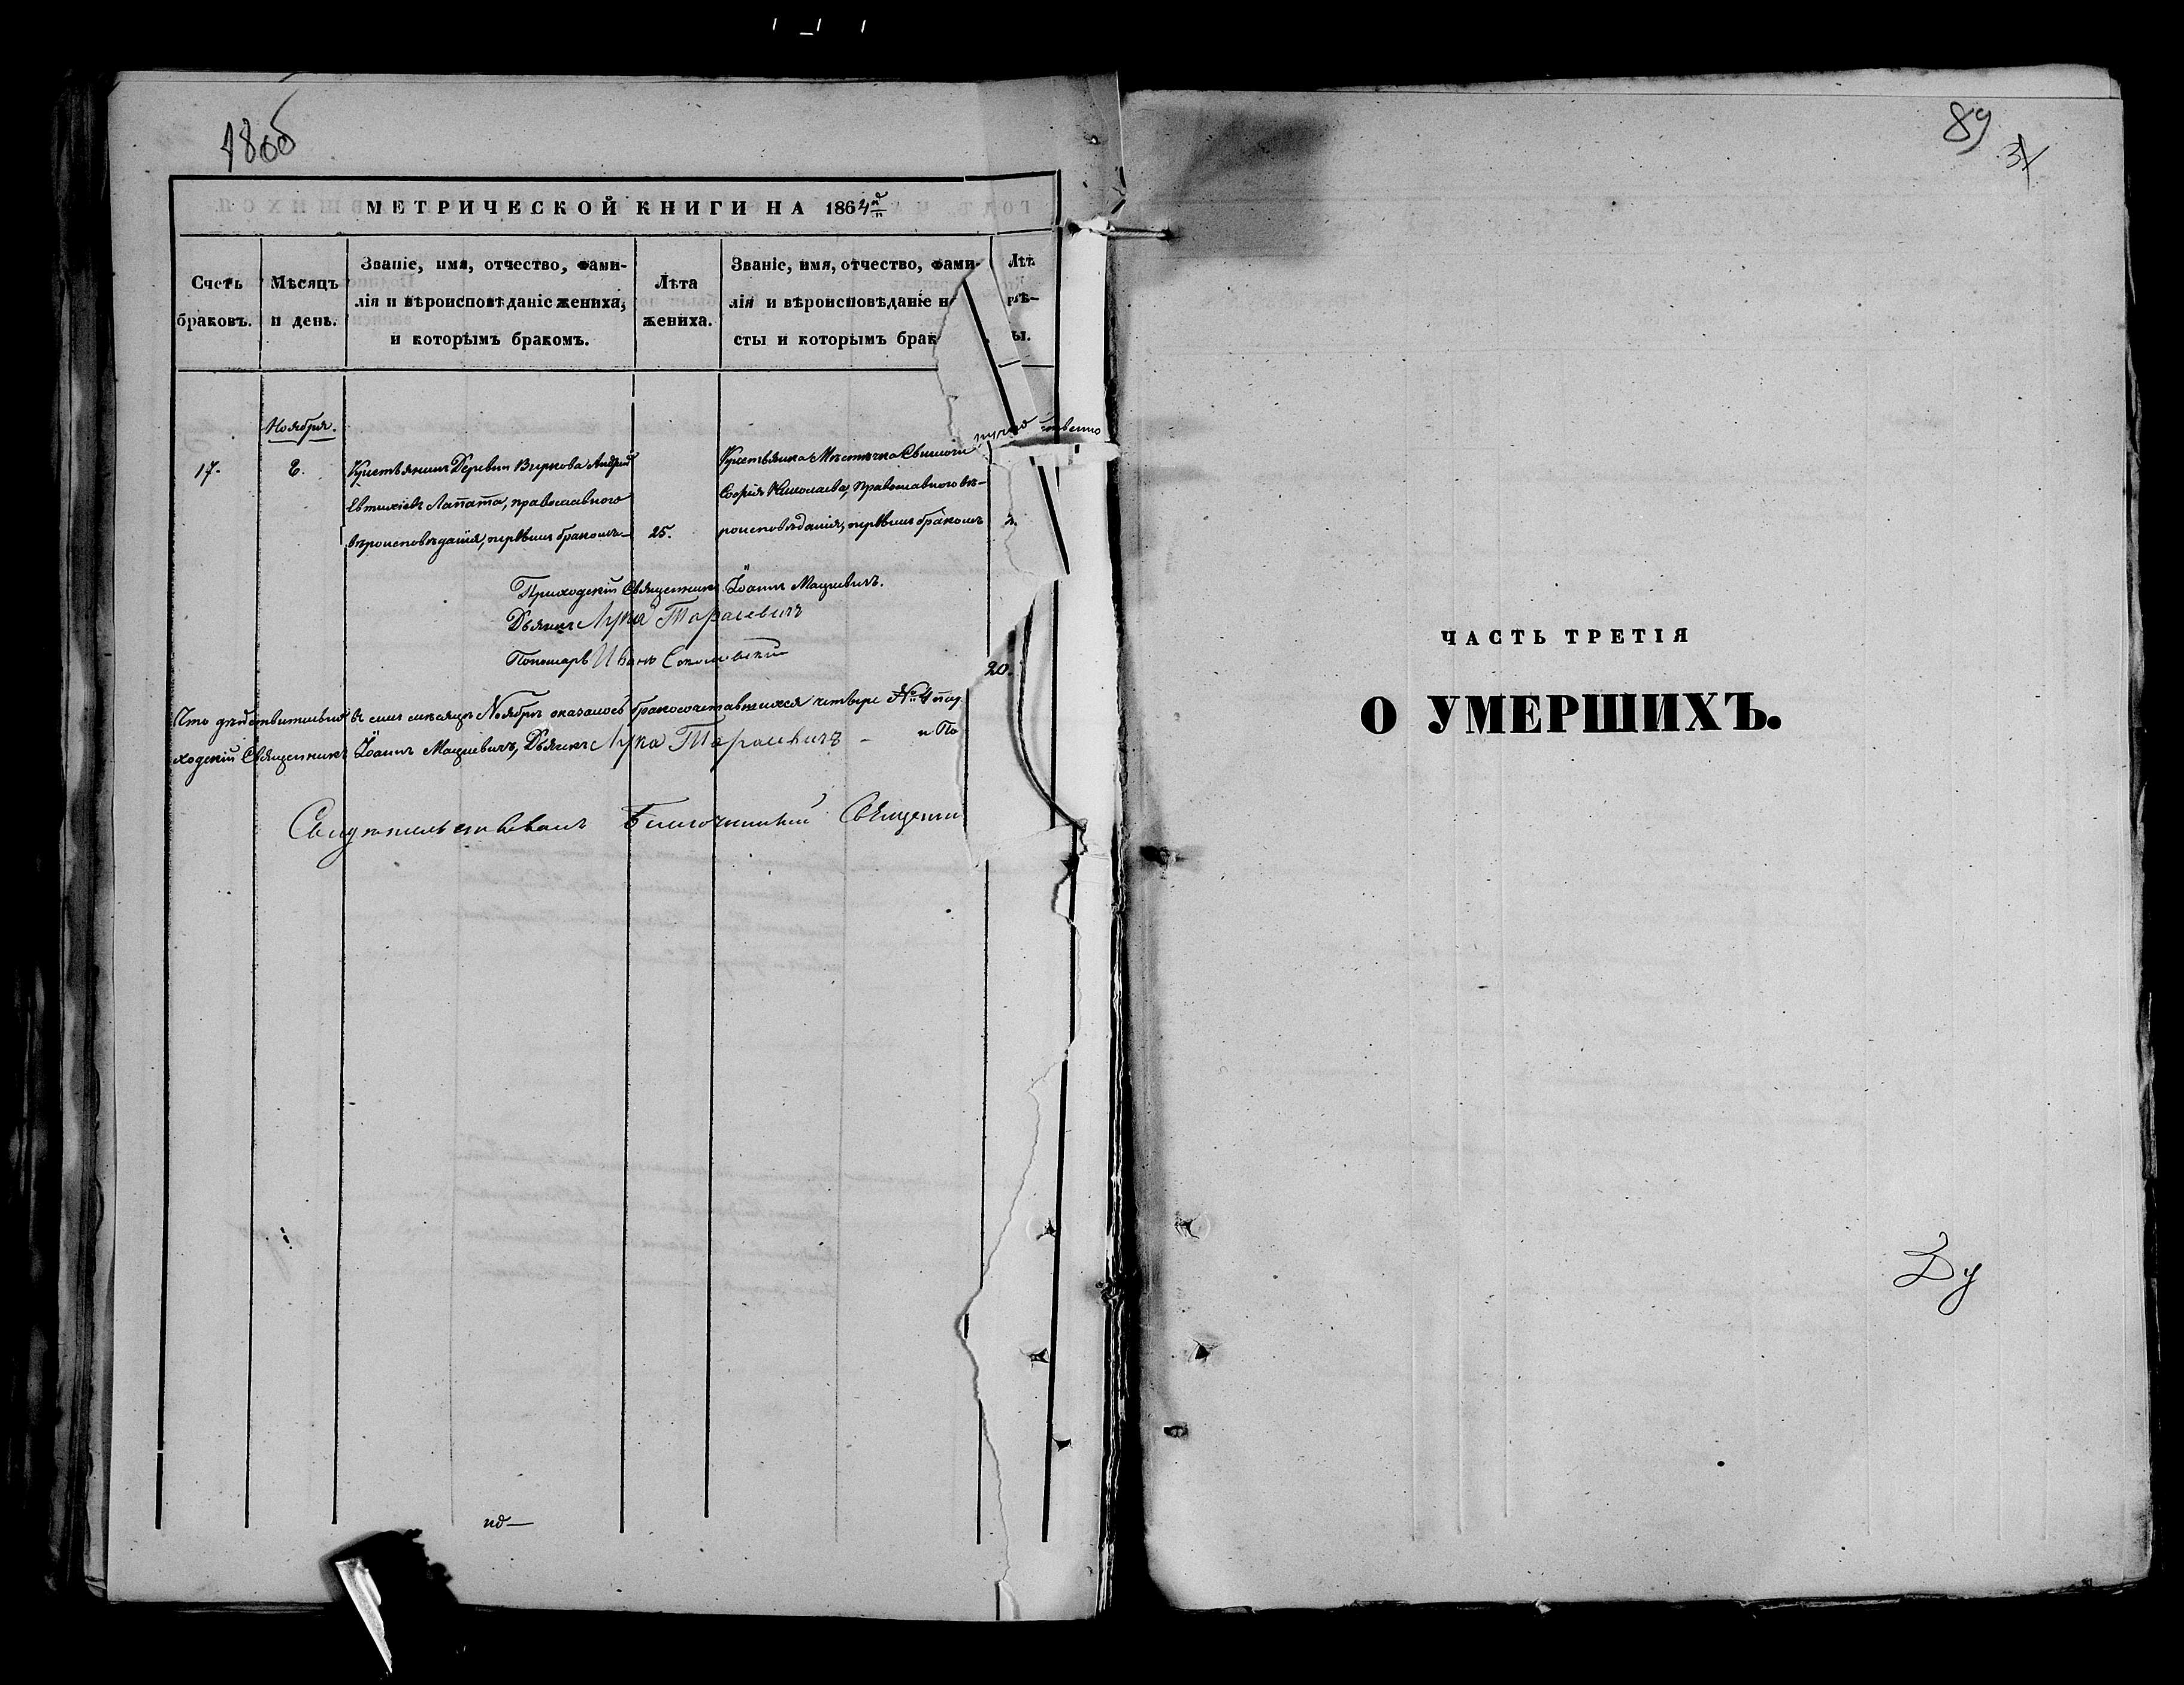 1866
МЕТРИЧЕСКОЙ КНИГИ НА 1864й
Счетъ браковъ.
Мѣсяцъ и день.
Званіе, имя, отчество, фами-
лія и вѣроисповѣданіе жениха,
и которымъ бракомъ.
Лѣта жениха.
Званіе, имя, отчество, фами-
лія и вѣроисповѣданіе не
сты и которымъ брак
Лѣт
ы.
Ноября.
17.
Крестьянинъ Деревни Виркова Андрей
Евтихіевъ Лапата, православнаго
вѣроисповѣданія, первымъ бракомъ
25.
Крестьянка Мѣстечка Свислочи
Софія Николаева, Православнаго вѣ-
роисповѣданія, первымъ бракомъ
Приходскій Священникъ Іоаннъ Мацкевичъ.
Дьячекъ Лука Тарасевичъ
Пономарь Иванъ
20.
Что дѣйствительно въ семъ мѣсяцѣ Ноябрѣ оказалось бракосочетавшихся четыре № 4
ходскій Священникъ Іоаннъ Мацкевичъ, Дьячекъ Лука Тарасевичъ – и По
Свидѣтельствовалъ Благочинный Священни
но—
89
ЧАСТЬ ТРЕТІЯ
О УМЕРШИХЪ.